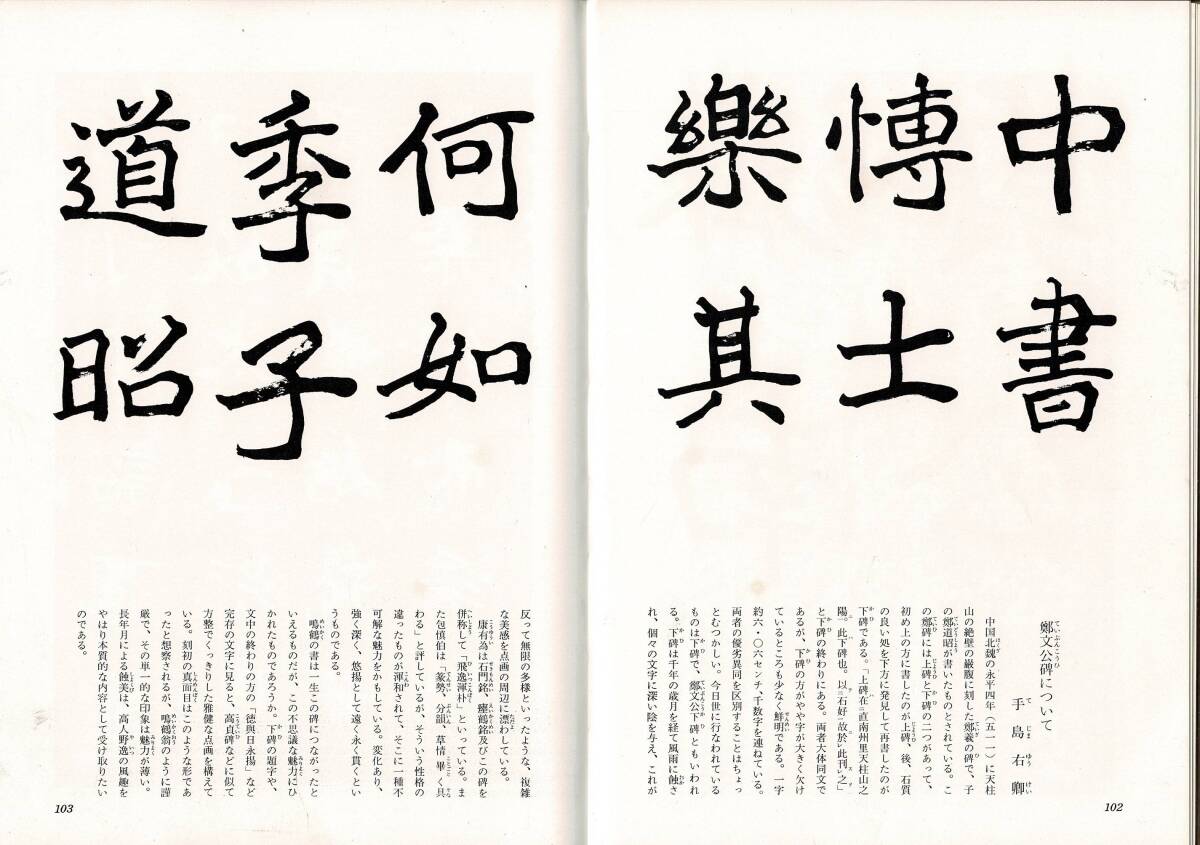 中書
慱士
樂其
鄭文公碑について
手島右卿
中国北魏の永平四年（五一一）に天柱
山の絶壁の巌腹に刻した鄭羲の碑で、子
の鄭道昭が書いたものとされている。こ
の鄭碑には上碑と下碑の二つがあって、
初め上の方に書したのが上碑、後、石質
の良い処を下方に発見して再書したのが
下碑である。「上碑在二直南州里天柱山之
陽一。此下碑也。以二石好一故於レ此刊レ之」
と下碑の終わりにある。両者大体同文で
あるが、下碑の方がやや字が大きく欠け
ているところも少なく鮮明である。一字
約六・〇六センチ、千数字を連ねている。
両者の優劣異同を区別することはちょっ
とむつかしい。今日世に行なわれている
ものは下碑で、鄭文公下碑ともいわれ
る。下碑は千年の歳月を経て風雨に蝕さ
れ、個々の文字に深い陰を与え、これが
102
何如
季子
道昭
反って無限の多様といったような、複雑
な美感を点画の周辺に漂わしている。
康有為は石門銘、瘞鶴銘及びこの碑を
併称して「飛逸渾朴」といっている。ま
た包慎伯は「篆勢、分韻、草情　畢く具
わる」と評しているが、そういう性格の
違ったものが渾和されて、そこに一種不
可解な魅力をかもしている。変化あり、
強く深く、悠揚として遠く永く貫くとい
うものである。
鳴鶴の書は一生この碑につながったと
いえるものだが、この不思議な魅力にひ
かれたものであろうか。下碑の題字や、
文中の終わりの方の「徳與日永揚」など
完存の文字に見ると、高貞碑などに似て
方整でくっきりした雅健な点画を構えて
いる。刻初の真面目はこのような形であ
ったと想察されるが、鳴鶴翁のように謹
厳で、その単一的な印象は魅力が薄い。
長年月による蝕美は、高人野逸の風趣を
やはり本質的な内容として受け取りたい
のである。
103